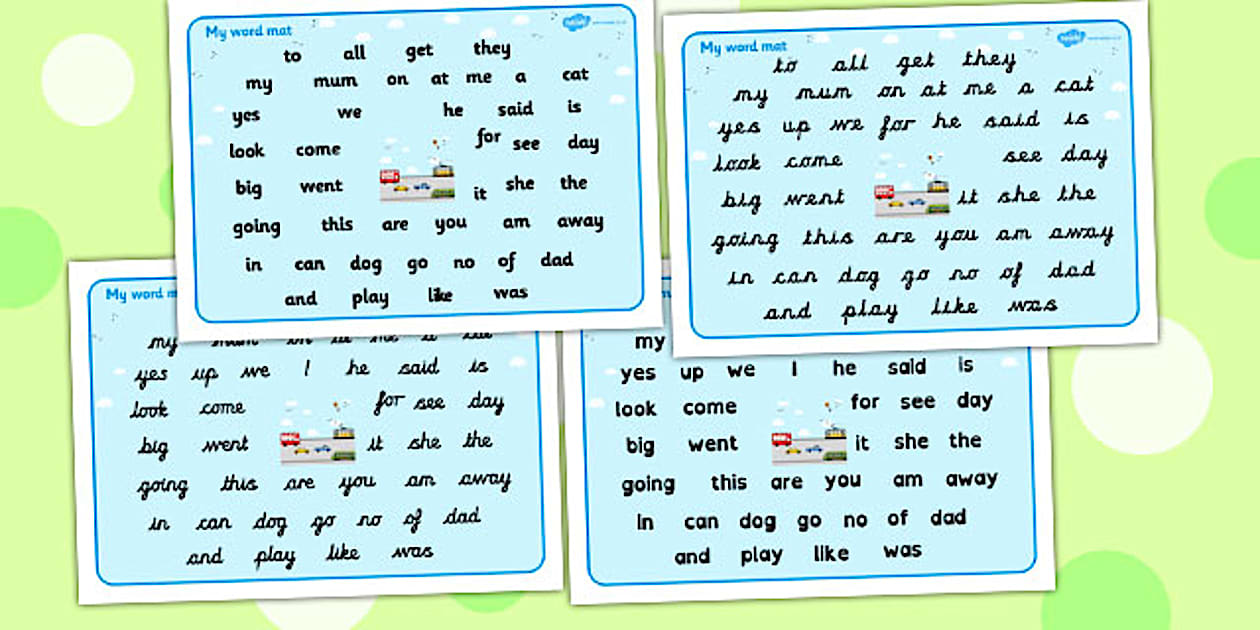 My word mat
to all get they
my mum on at me a cat
yes we he said is
look come for see day
big went it she the
going this are you am away
in can dog go no of dad
and play like was
My word mat
to all get they
my mum on at me a cat
yes up we for he said is
look come see day
big went it she the
going this are you am away
in can dog go no of dad
and play like was
My word
my
yes up we I he said is
look come for see day
big went it she the
going this are you am away
in can dog go no of dad
and play like was
my
yes up we I he said is
look come for see day
big went it she the
going this are you am away
in can dog go no of dad
and play like was